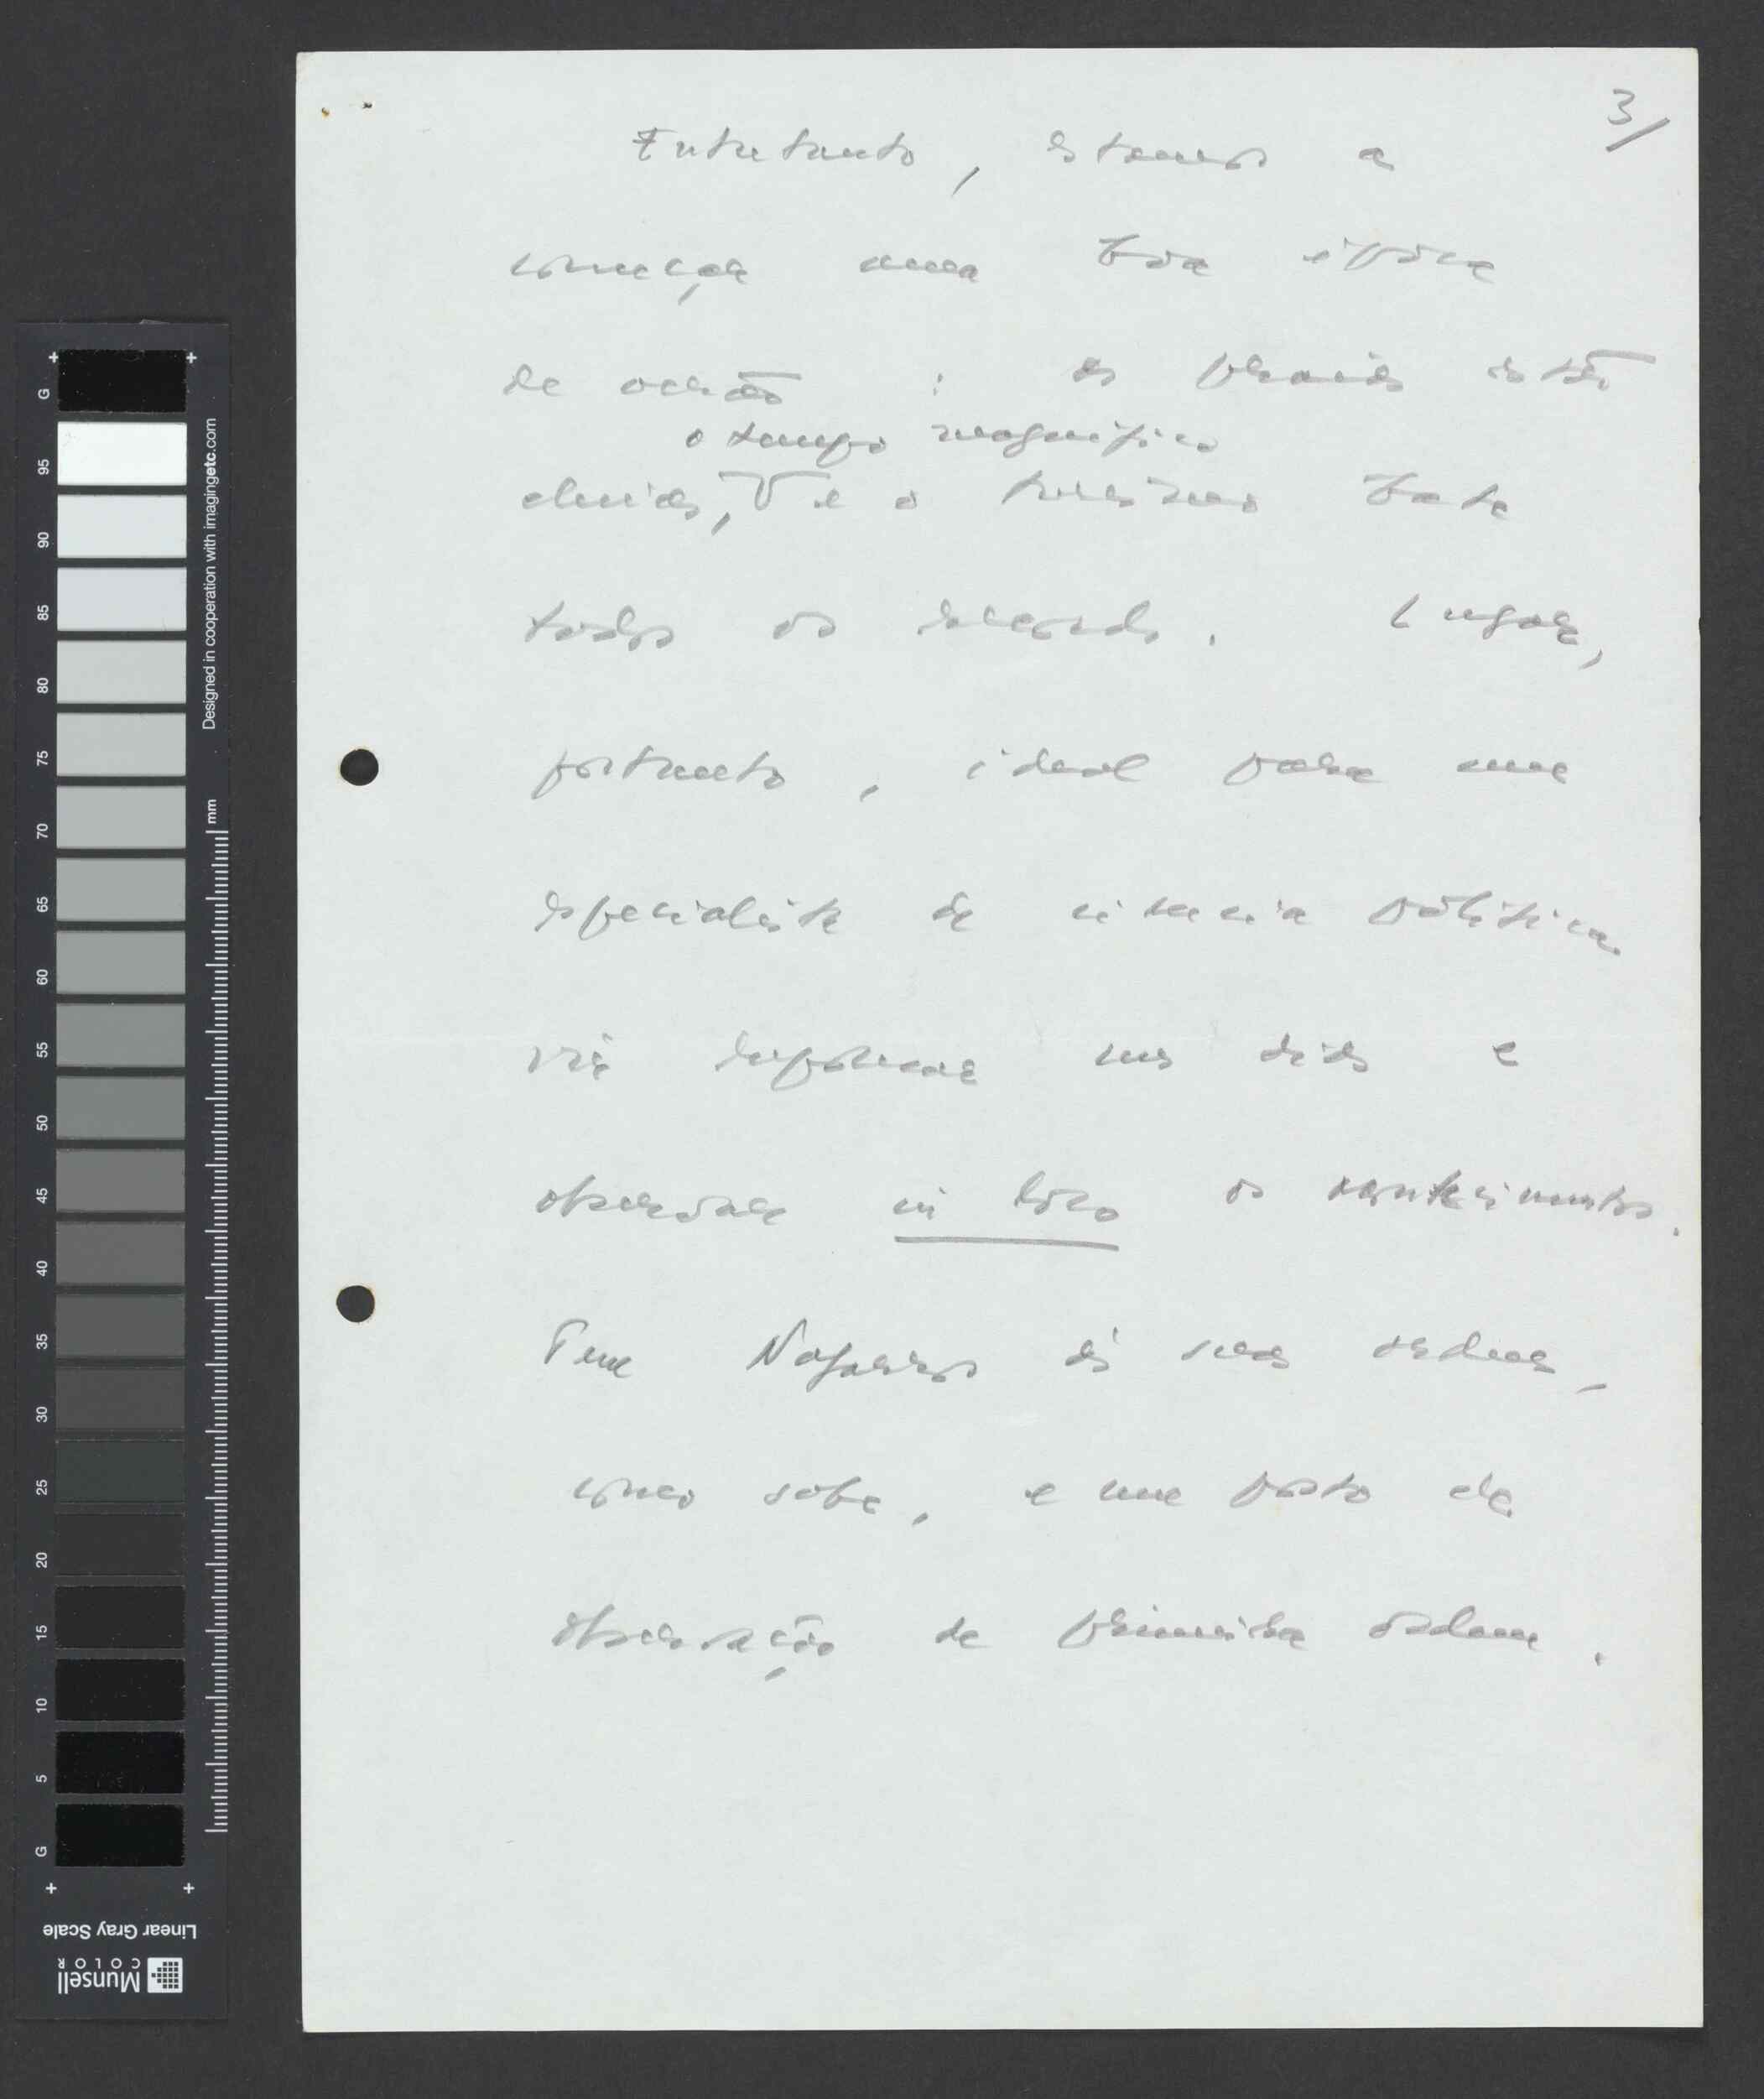 3/
Entretanto, estamos a
começar uma boa época
de verão : as praias estão
o tempo magnífico
cheias, e o turismo bate
todos os records. Lugar,
portanto, ideal para um
especialista de ciência política
vir repousar uns dias e
observar in loco os acontecimentos.
Tem Nafarros às suas ordens,
como sabe, e um posto de
observação de primeira ordem.
G 95 90 85 80 75 70 65 60 55 50 45 40 35 30 25 20 15 10 5 G
Designed in cooperation with imagingetc.com
mm
Linear Gray Scale
Munsell
COLOR